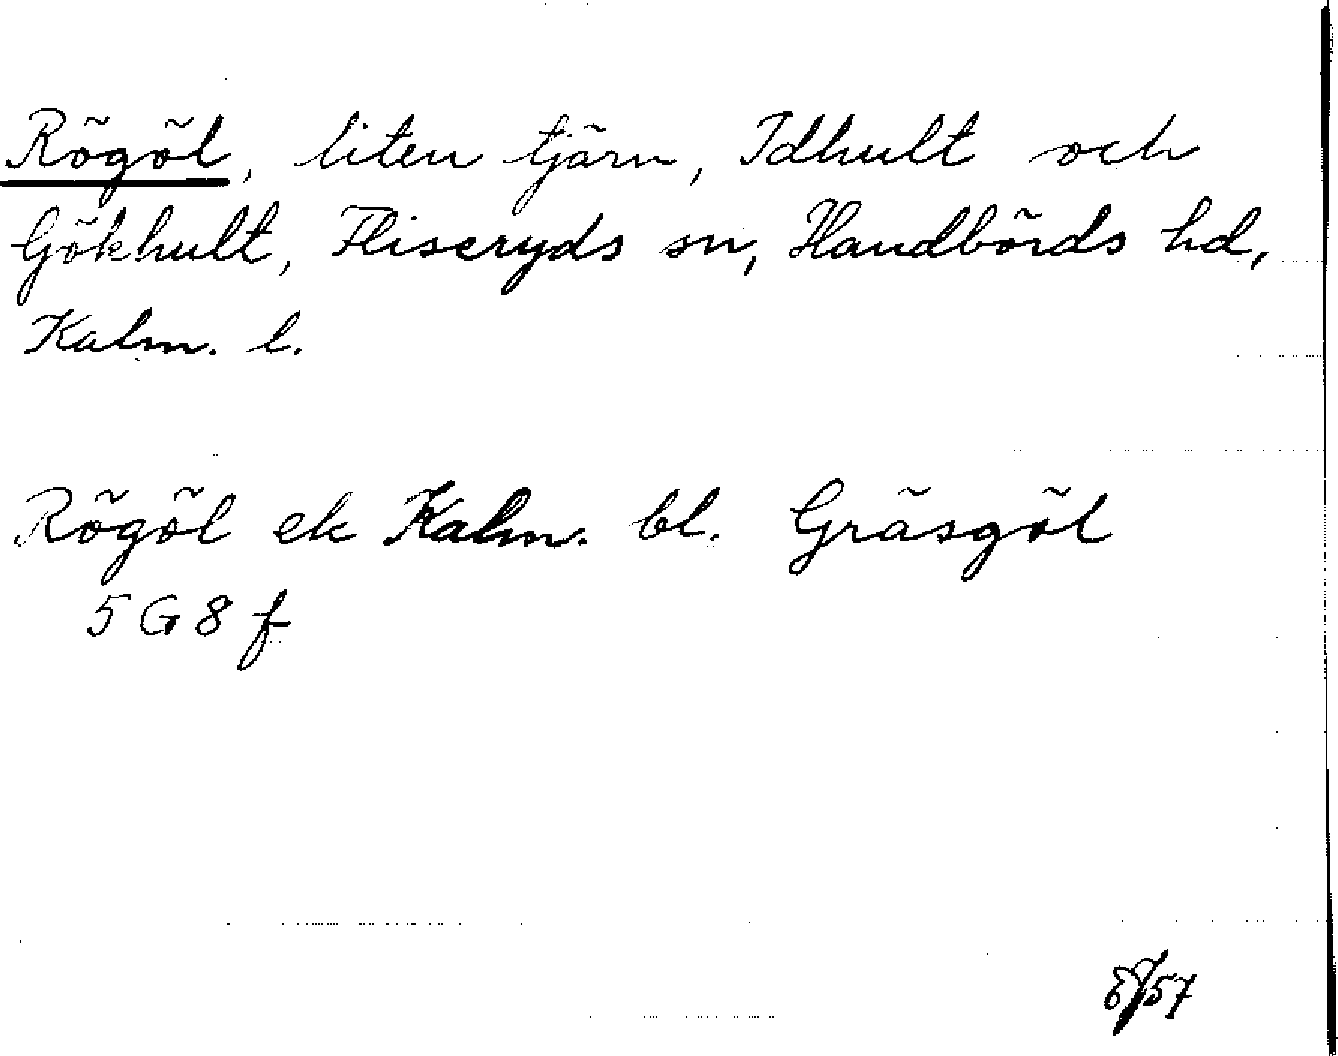 Rögöl, liten tjärn, Idhult och
Gökhult, Fliseryds sn, Handbörds hd,
Kalm. l.
Rögöl ek Kalm. bl. Gräsgöl
5 G 8 f